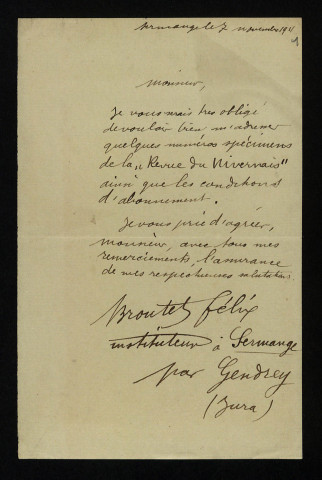 Sermange le 7 novembre 191
Monsieur,
Je vous serais très obligé
de vouloir bien m'adresser
quelques numéros spécimens
de la „Revue du Nivernais"
ainsi que les conditions
d'abonnement.
Je vous prie d'agréer,
monsieur, avec tous mes
remerciements, l'assurance
de mes respectueuses salutations
Broutet Félix
instituteur à Sermange
par Gendrey
(Jura)